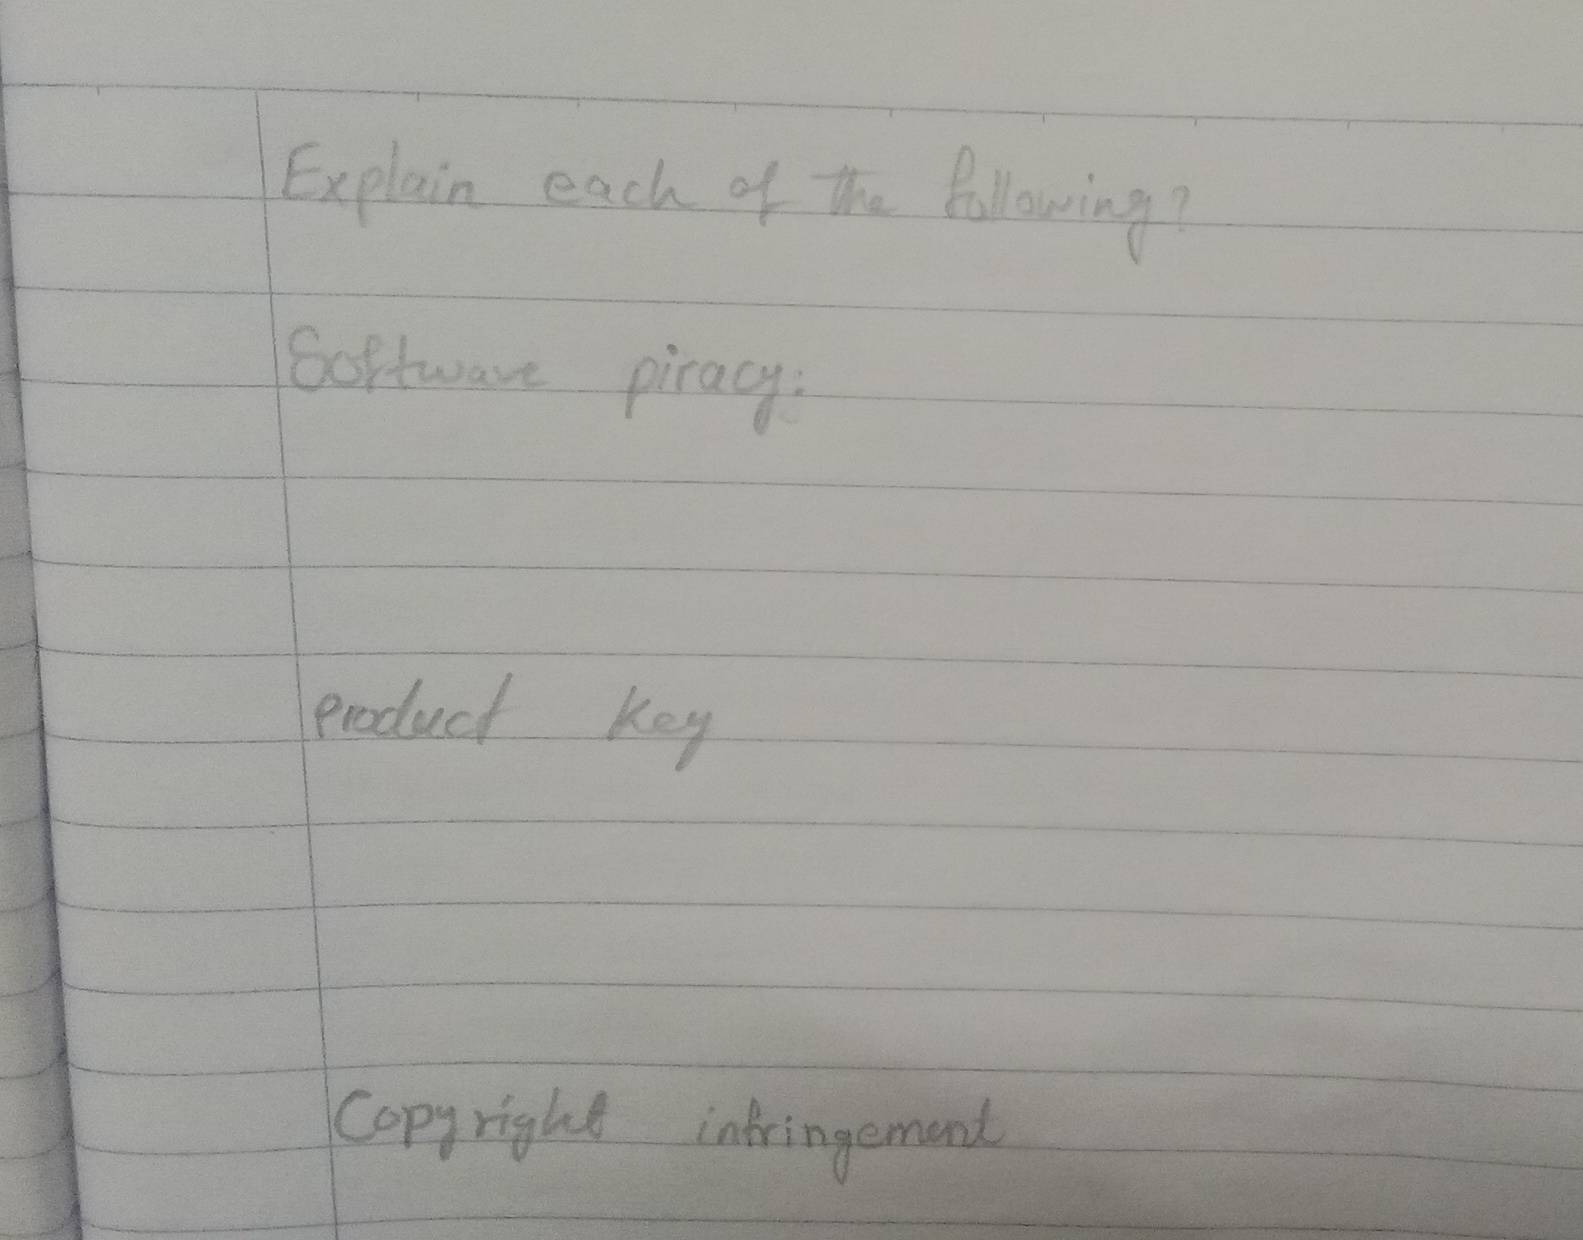 Explain each of the following?
Software piracy:
product key
Copyright infringement